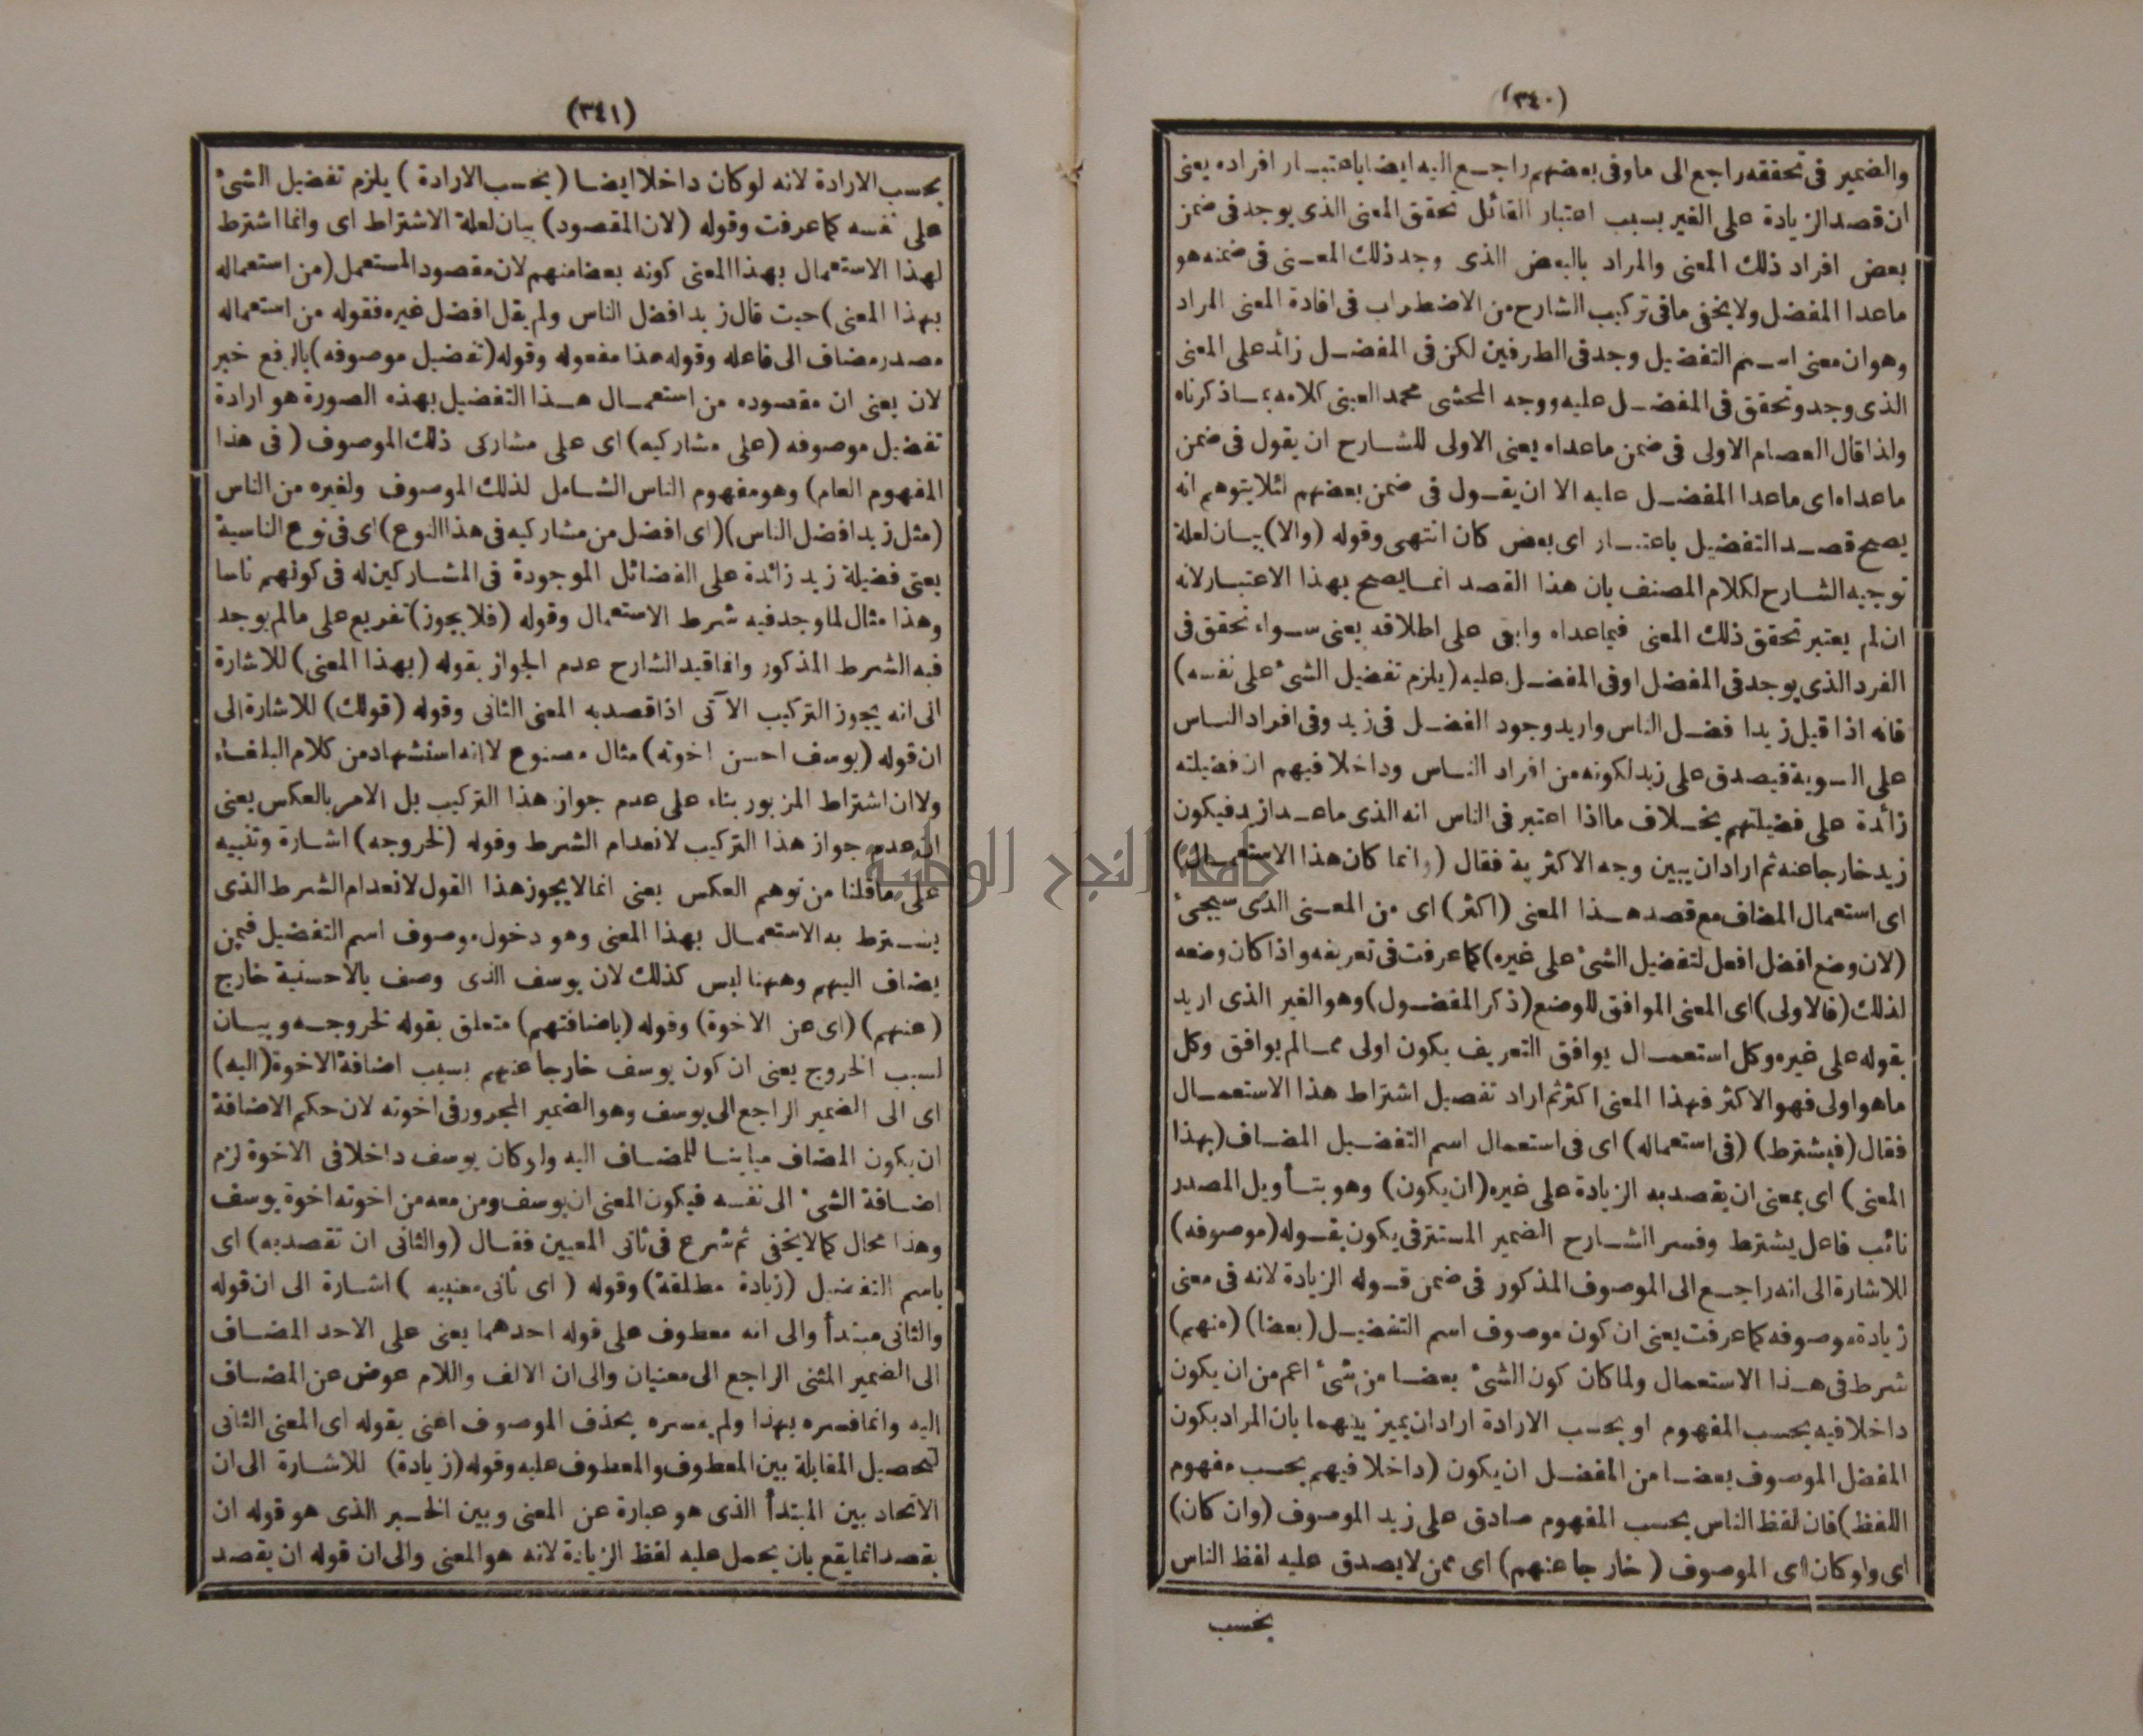 (٣٤٠)
والضمير فى تحققه راجع الى ما وفى بعضهم راجع اليه ايضا باعتبار افراده يعنى
ان قصد الزيادة على الغير بسبب اعتبار القائل تحقق المعنى الذى يوجد فى ضمن
بعض افراد ذلك المعنى والمراد بالبعض الذى وجد ذلك المعنى فى ضمنه هو
ماعدا المفضل ولا يخفى ما فى تركيب الشارح من الاضطراب فى افادة المعنى المراد
وهو ان معنى اسم التفضيل وجد فى الطرفين لكن فى المفضل زائد على المعنى
الذى وجد وتحقق فى المفضل عليه ووجه المحشى محمد العينى كلامه بما ذكرناه
ولذا قال العصام الاولى فى ضمن ماعداه يعنى الاولى للشارح ان يقول فى ضمن
ماعداه اى ماعدا المفضل عليه الا ان يقول فى ضمن بعضهم لئلا يتوهم انه
يصح قصد التفضيل باعتبار اى بعض كان انتهى وقوله (والا) بيان لعلة
توجيه الشارح لكلام المصنف بان هذا القصد انما يصح بهذا الاعتبار لانه
ان لم يعتبر تحقق ذلك المعنى فيماعداه وابقى على اطلاقه يعنى سواء تحقق فى
الفرد الذى يوجد فى المفضل او فى المفضل عليه (يلزم تفضيل الشئ على نفسه)
فانه اذا قيل زيدا فضل الناس واريد وجود الفضل فى زيد وفى افراد الناس
على السوية فيصدق على زيد لكونه من افراد الناس وداخلا فيهم ان فضيلته
زائدة على فضيلتهم بخلاف ما اذا اعتبر فى الناس انه الذى ماعدا زيد فيكون
زيد خارجا عنه ثم اراد ان يبين وجه الاكثرية فقال (وانما كان هذا الاستعمال)
اى استعمال المضاف مع قصد هذا المعنى (اكثر) اى من المعنى الذى سيجئ
(لان وضع افضل افعل لتفضيل الشئ على غيره) كما عرفت فى تعريفه واذا كان وضعه
لذلك (فالاولى) اى المعنى الموافق للوضع (ذكر المفضول) وهو الغير الذى اريد
بقوله على غيره وكل استعمال يوافق التعريف يكون اولى مما لم يوافق وكل
ماهو اولى فهو الاكثر فهذا المعنى اكثر ثم اراد تفصيل اشتراط هذا الاستعمال
فقال (فيشترط) (فى استعماله) اى فى استعمال اسم التفضيل المضاف (بهذا
المعنى) اى بمعنى ان يقصد به الزيادة على غيره (ان يكون) وهو بتأويل المصدر
نائب فاعل يشترط وفسر الشارح الضمير المستتر فى يكون بقوله (موصوفه)
للاشارة الى انه راجع الى الموصوف المذكور فى ضمن قوله الزيادة لانه فى معنى
زيادة موصوفه كما عرفت يعنى ان كون موصوف اسم التفضيل (بعضا) (منهم)
شرط فى هذا الاستعمال ولما كان كون الشئ بعضا من شئ اعم من ان يكون
داخلا فيه بحسب المفهوم او بحسب الارادة اراد ان يميز بينهما بان المراد بكون
المفضل الموصوف بعضا من المفضل ان يكون (داخلا فيهم بحسب مفهوم
اللفظ) فان لفظ الناس بحسب المفهوم صادق على زيد الموصوف (وان كان)
اى ولو كان اى الموصوف (خارجا عنهم) اى ممن لا يصدق عليه لفظ الناس
بحسب
(٣٤١)
بحسب الارادة لانه لو كان داخلا ايضا (بحسب الارادة) يلزم تفضيل الشئ
على نفسه كما عرفت وقوله (لان المقصود) بيان لعلة الاشتراط اى وانما اشترط
لهذا الاستعمال بهذا المعنى كونه بعضا منهم لان مقصود المستعمل (من استعماله
بهذا المعنى) حيث قال زيد افضل الناس ولم يقل افضل غيره فقوله من استعماله
مصدر مضاف الى فاعله وقوله هذا مفعوله وقوله (تفضيل موصوفه) بالرفع خبر
لان يعنى ان مقصوده من استعمال هذا التفضيل بهذه الصورة هو ارادة
تفضيل موصوفه (على مشاركيه) اى على مشاركى ذلك الموصوف (فى هذا
المفهوم العام) وهو مفهوم الناس الشامل لذلك الموصوف ولغيره من الناس
(مثل زيد افضل الناس) (اى افضل من مشاركيه فى هذا النوع) اى فى نوع الناسية
يعنى فضيلة زيد زائدة على الفضائل الموجودة فى المشاركين له فى كونهم ناسا
وهذا مثال لما وجد فيه شرط الاستعمال وقوله (فلا يجوز) تفريع على مالم يوجد
فيه الشرط المذكور وانما قيد الشارح عدم الجواز بقوله (بهذا المعنى) للاشارة
الى انه يجوز التركيب الآتى اذا قصد به المعنى الثانى وقوله (قولك) للاشارة الى
ان قوله (يوسف احسن اخوته) مثال مصنوع لا انه استشهاد من كلام البلغاء
ولا ان اشتراط المزبور بناء على عدم جواز هذا التركيب بل الامر بالعكس يعنى
ان عدم جواز هذا التركيب لانعدام الشرط وقوله (لخروجه) اشارة وتنبيه
على ما قلنا من توهم العكس يعنى انما لا يجوز هذا القول لانعدام الشرط الذى
يشترط به الاستعمال بهذا المعنى وهو دخول موصوف اسم التفضيل فيمن
يضاف اليهم وههنا ليس كذلك لان يوسف الذى وصف بالاحسنية خارج
(عنهم) (اى عن الاخوة) وقوله (باضافتهم) متعلق بقوله لخروجه وبيان
لسبب الخروج يعنى ان كون يوسف خارجا عنهم بسبب اضافة الاخوة (اليه)
اى الى الضمير الراجع الى يوسف وهو الضمير المجرور فى اخوته لان حكم الاضافة
ان يكون المضاف مباينا للمضاف اليه ولو كان يوسف داخلا فى الاخوة لزم
اضافة الشئ الى نفسه فيكون المعنى ان يوسف ومن معه من اخوته اخوة يوسف
وهذا محال كما لا يخفى ثم شرع فى ثانى المعيين فقال (والثانى ان تقصد به) اى
باسم التفضيل (زيادة مطلقة) وقوله (اى ثانى معنييه) اشارة الى ان قوله
والثانى مبتدأ والى انه معطوف على قوله احدهما يعنى على الاحد المضاف
الى الضمير المثنى الراجع الى معنيان والى ان الالف واللام عوض عن المضاف
اليه وانما فسره بهذا ولم يفسره بحذف الموصوف اعنى بقوله اى المعنى الثانى
لتحصيل المقابلة بين المعطوف والمعطوف عليه وقوله (زيادة) للاشارة الى ان
الاتحاد بين المبتدأ الذى هو عبارة عن المعنى وبين الخبر الذى هو قوله ان
يقصد انما يقع بان يحمل عليه لفظ الزيادة لانه هو المعنى والى ان قوله ان يقصد
جامعة النجاح الوطنية